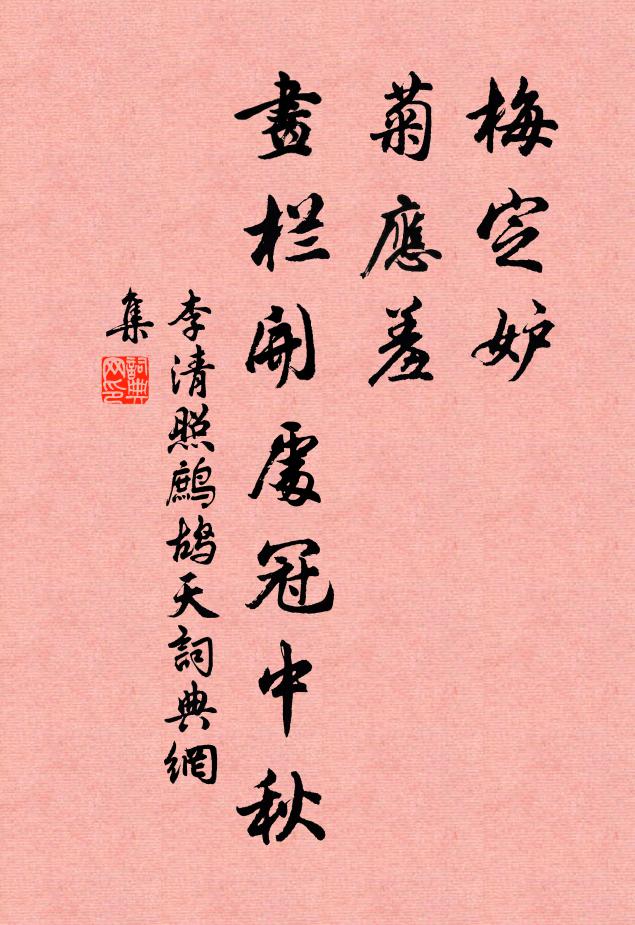 梅定妒
菊應羞
畫栏開處冠中秋
李清照鷓鴣天詞典網
集
詞典網印